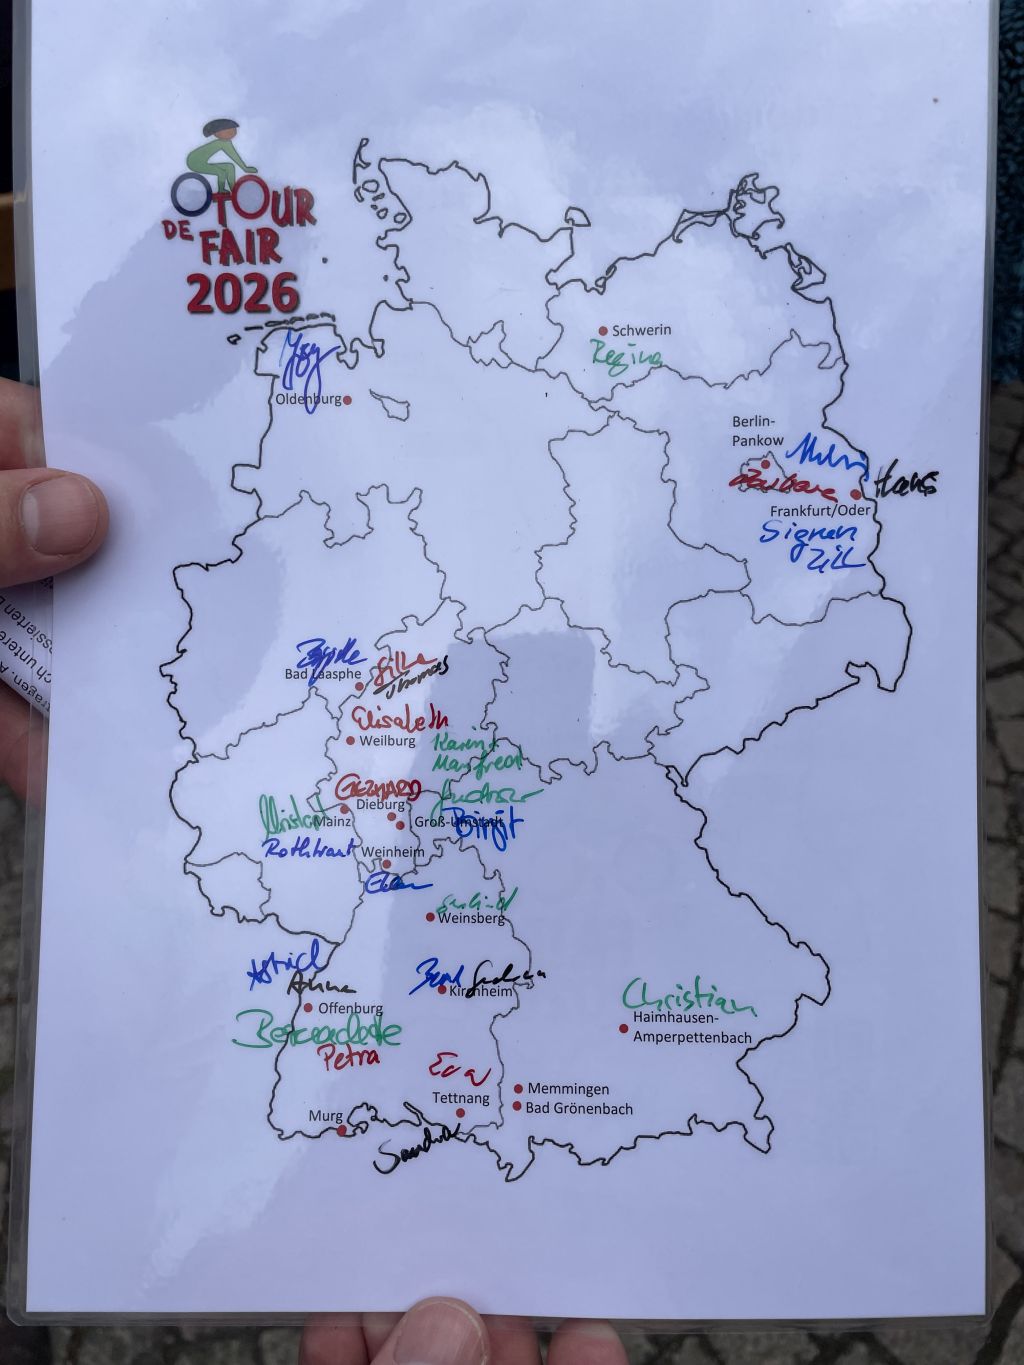 TOUR
DE
FAIR
2026
Schwerin
Regina
Oldenburg
Berlin-
Pankow
Barbara
Hans
Frankfurt/Oder
Signen
Gilla
Bad Laasphe
Thomas
Elisabeth
Weilburg
Karin +
Manfred
GERHARD
Dieburg
Gudrun
Mainz
Groß-Umstadt
Birgit
Rothtraut
Weinheim
Weinsberg
Astrid
Anna
Kirchheim
Offenburg
Christian
Haimhausen-
Amperpettenbach
Bernadette
Petra
Eva
Memmingen
Tettnang
Bad Grönenbach
Murg
Sandra